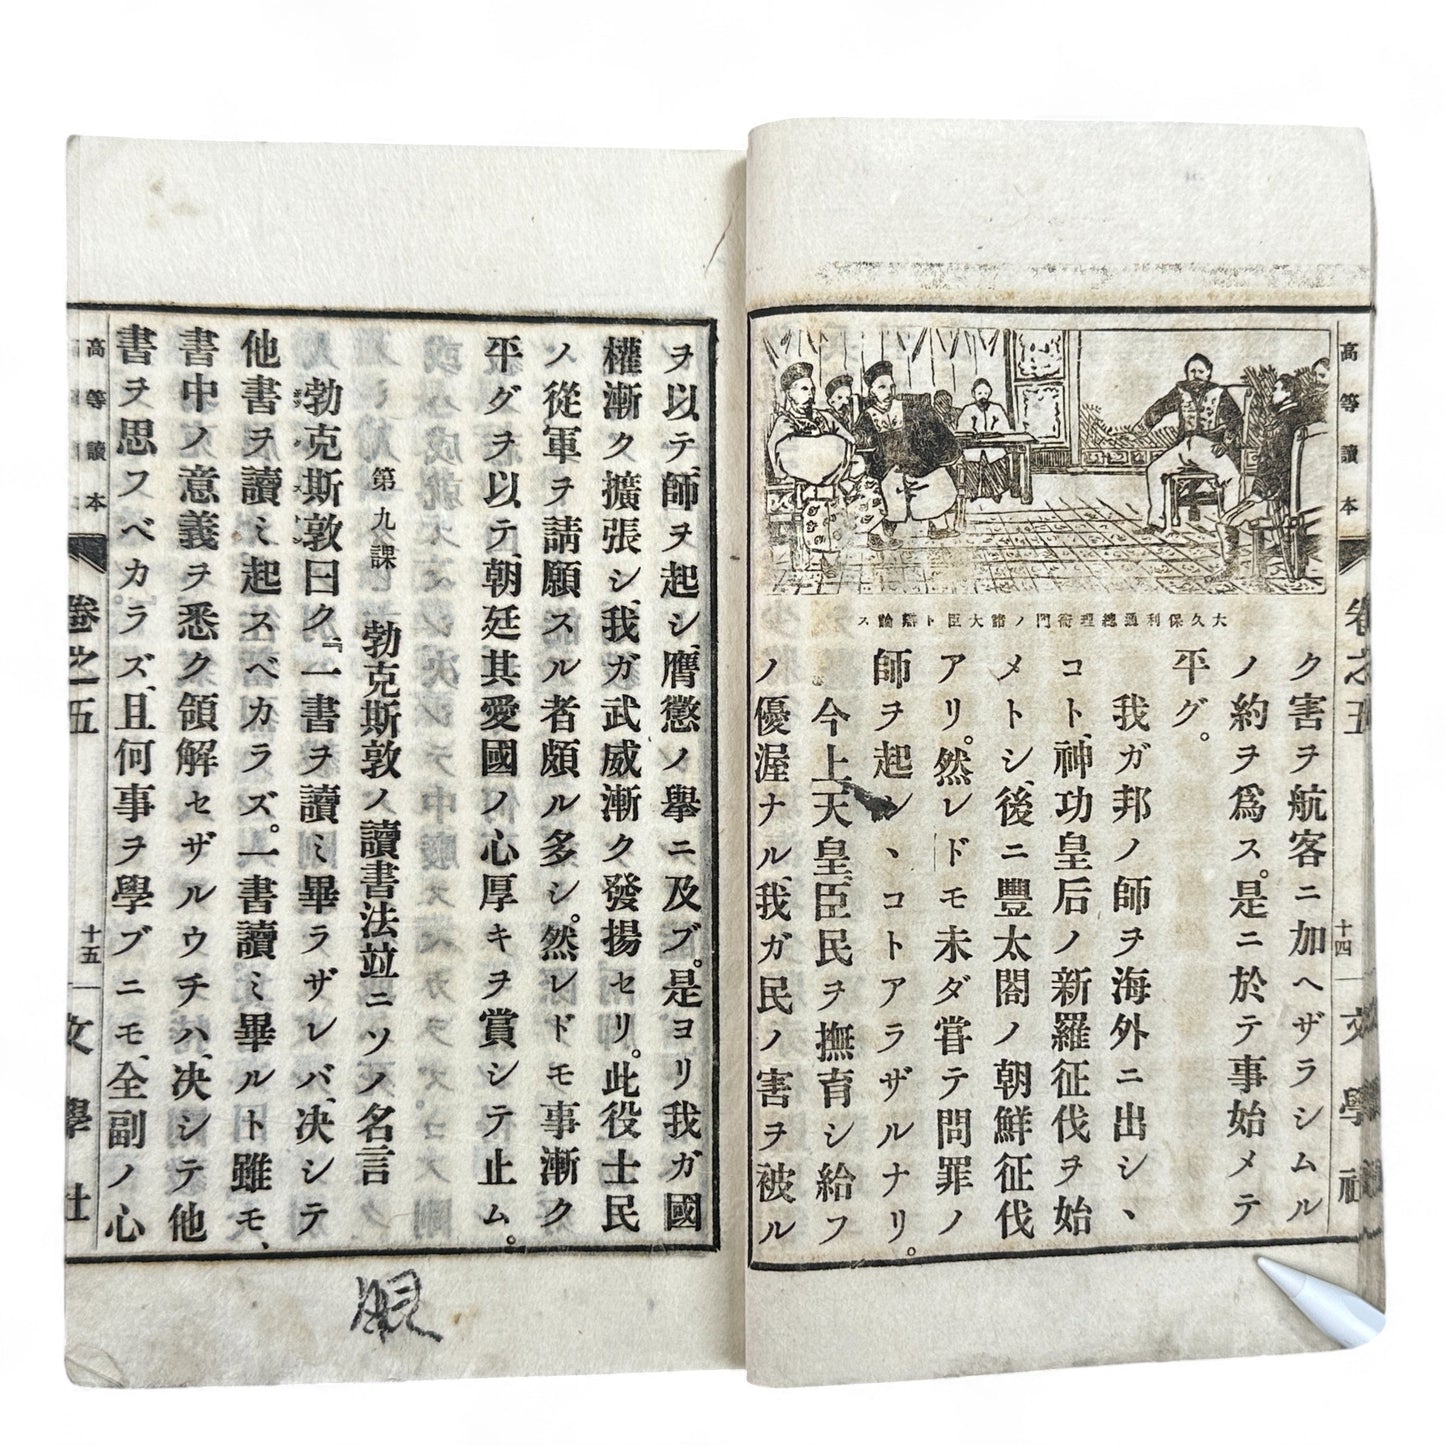 高等讀本
卷之五
十四
文學社
大久保利通總理衙門ノ諸大臣ト辯論ス
ク害ヲ航客ニ加ヘザラシムル
ノ約ヲ爲ス。是ニ於テ事始メテ
平グ。
我ガ邦ノ師ヲ海外ニ出シヽ
コト、神功皇后ノ新羅征伐ヲ始
メトシ、後ニ豐太閤ノ朝鮮征伐
アリ。然レドモ未ダ嘗テ問罪ノ
師ヲ起シヽコトアラザルナリ。
今上天皇、臣民ヲ撫育シ給フ
ノ優渥ナル、我ガ民ノ害ヲ被ル
ヲ以テ、師ヲ起シ、膺懲ノ擧ニ及ブ。是ヨリ我ガ國
權漸ク擴張シ、我ガ武威漸ク發揚セリ。此役士民
ノ從軍ヲ請願スル者頗ル多シ。然レドモ事漸ク
平グヲ以テ、朝廷其愛國ノ心厚キヲ賞シテ止ム。
第九課 勃克斯敦ノ讀書法竝ニソノ名言
勃克斯敦曰ク、『一書ヲ讀ミ畢ラザレバ、决シテ
他書ヲ讀ミ起スベカラズ。一書讀ミ畢ルト雖モ、
書中ノ意義ヲ悉ク領解セザルウチハ、决シテ他
書ヲ思スベカラズ、且何事ヲ學ブニモ、全副ノ心
高等讀本
卷之五
十五
文學社
眼